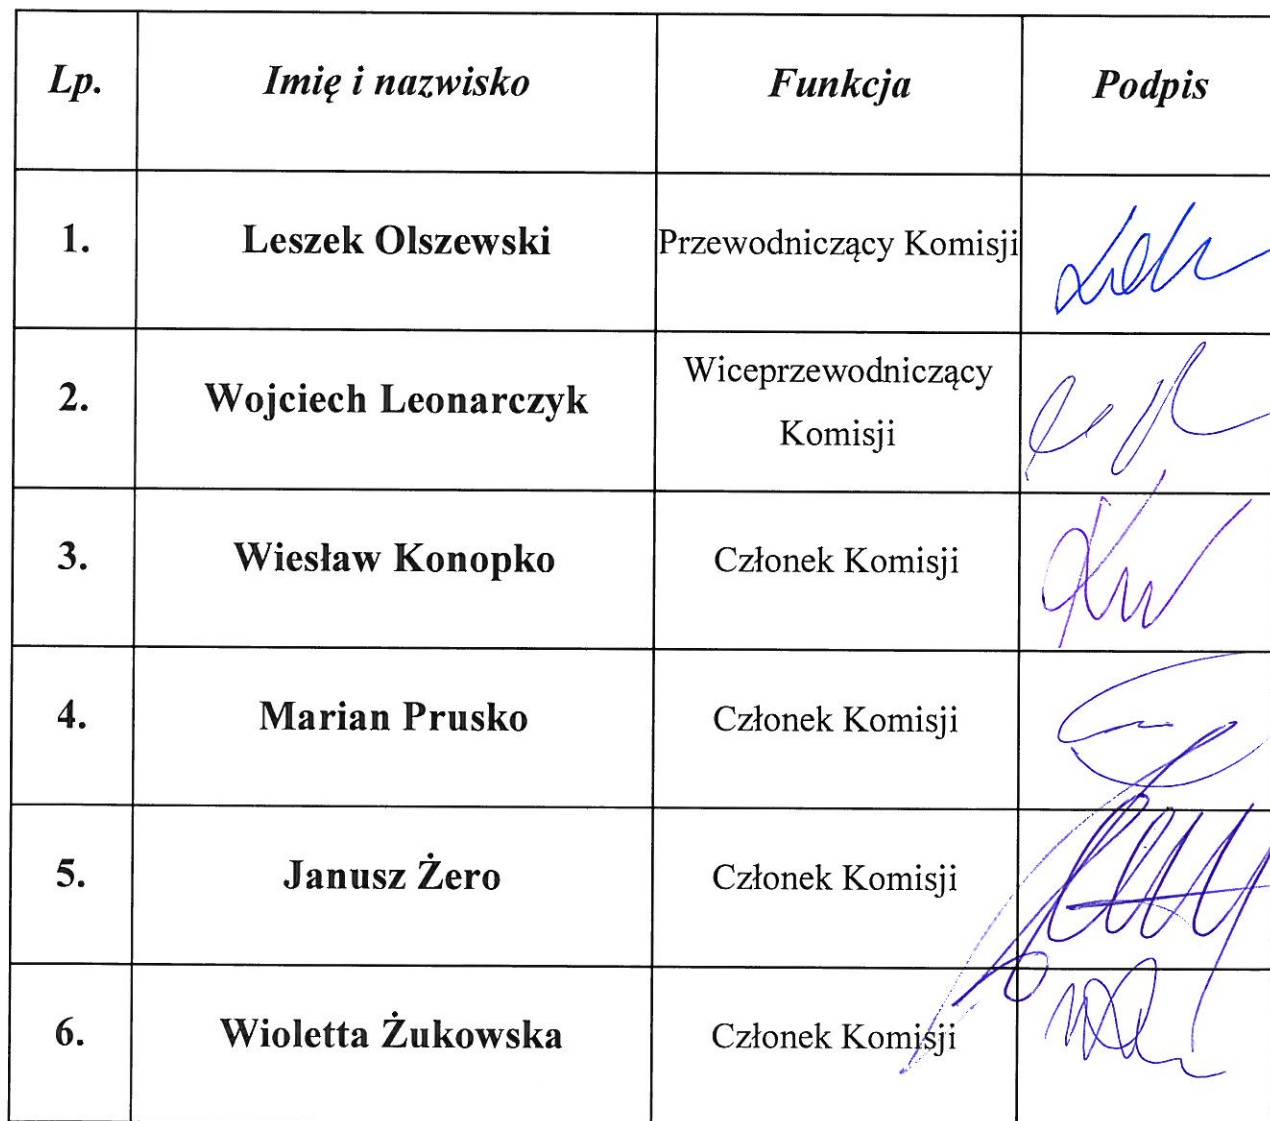 Lp. Imię i nazwisko Funkcja Podpis
1. Leszek Olszewski Przewodniczący Komisji
2. Wojciech Leonarczyk Wiceprzewodniczący
Komisji
3. Wiesław Konopko Członek Komisji
4. Marian Prusko Członek Komisji
5. Janusz Żero Członek Komisji
6. Wioletta Żukowska Członek Komisji